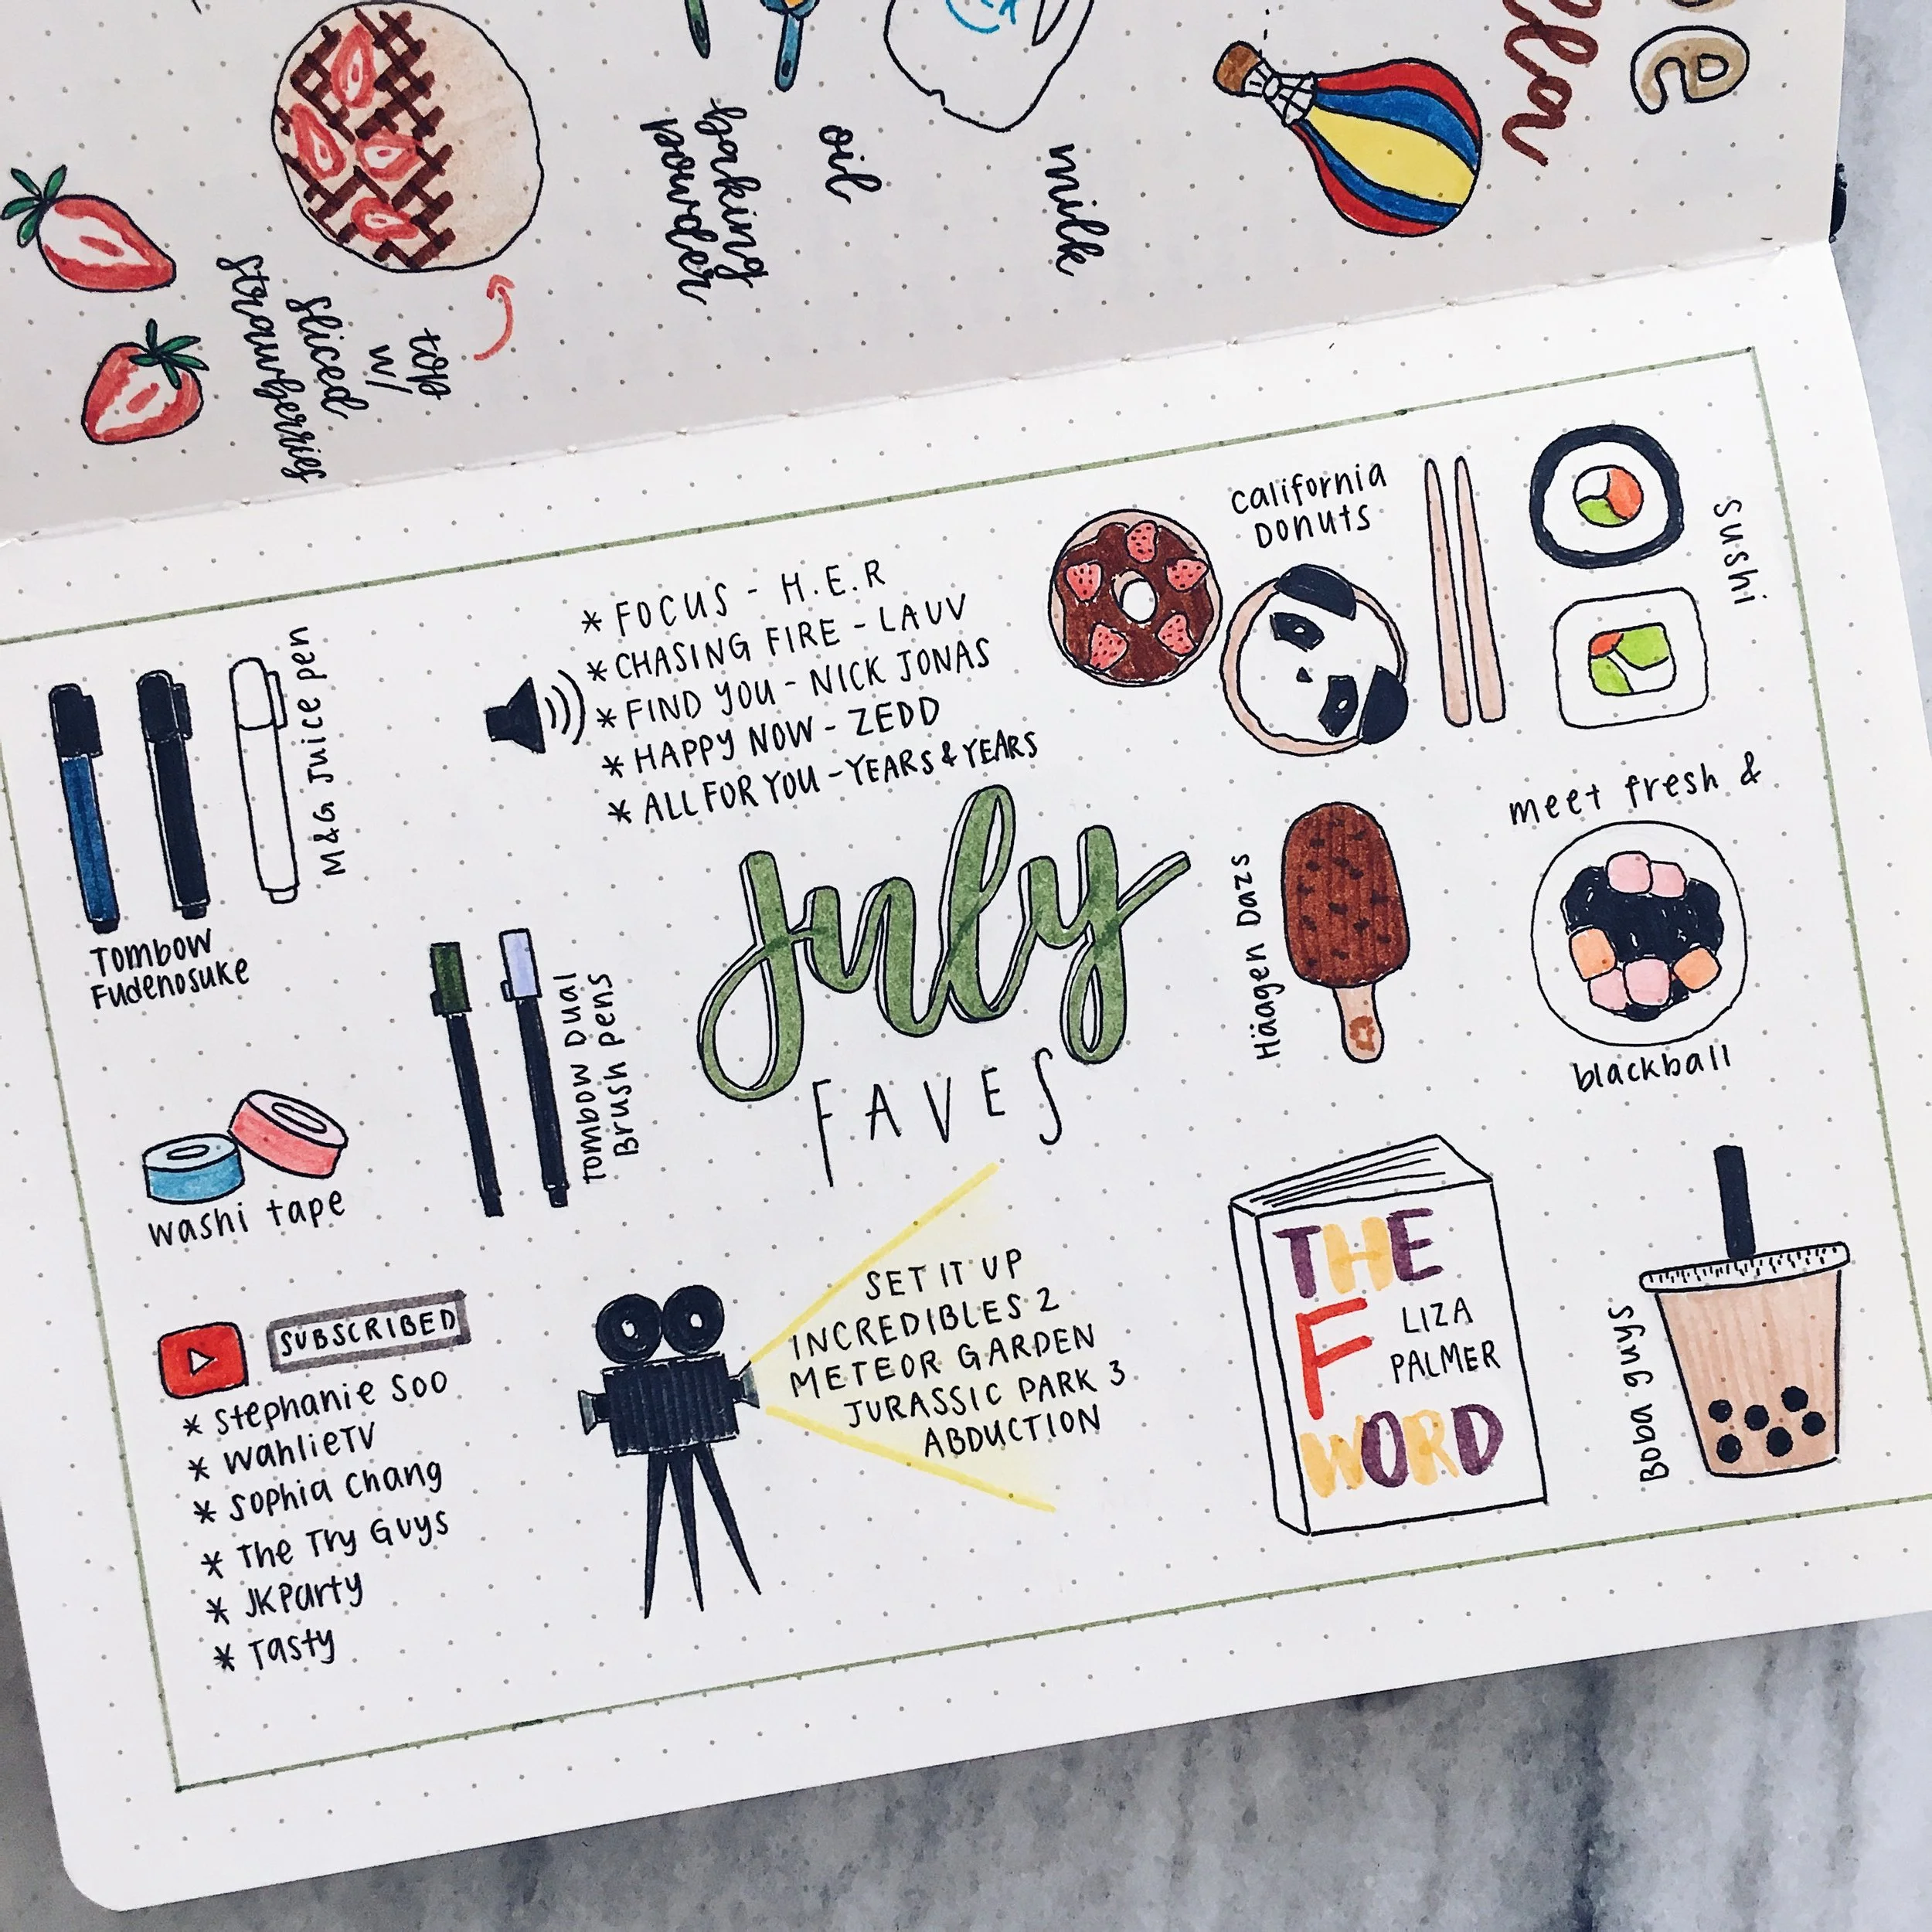 milk
oil
baking
powder
top
w/
sliced
strawberries
* FOCUS - H.E.R
* CHASING FIRE - LAUV
* FIND YOU - NICK JONAS
* HAPPY NOW - ZEDD
* ALL FOR YOU - YEARS & YEARS
California
Donuts
Sushi
M&G Juice pen
Tombow
Fudenosuke
Tombow Dual
Brush Pens
July
FAVES
Häagen Dazs
meet fresh &
blackball
washi tape
SUBSCRIBED
* Stephanie Soo
* WahlieTV
* Sophia Chang
* The Try Guys
* JKParty
* Tasty
SET IT UP
INCREDIBLES 2
METEOR GARDEN
JURASSIC PARK 3
ABDUCTION
THE
F
LIZA
PALMER
WORD
Boba guys